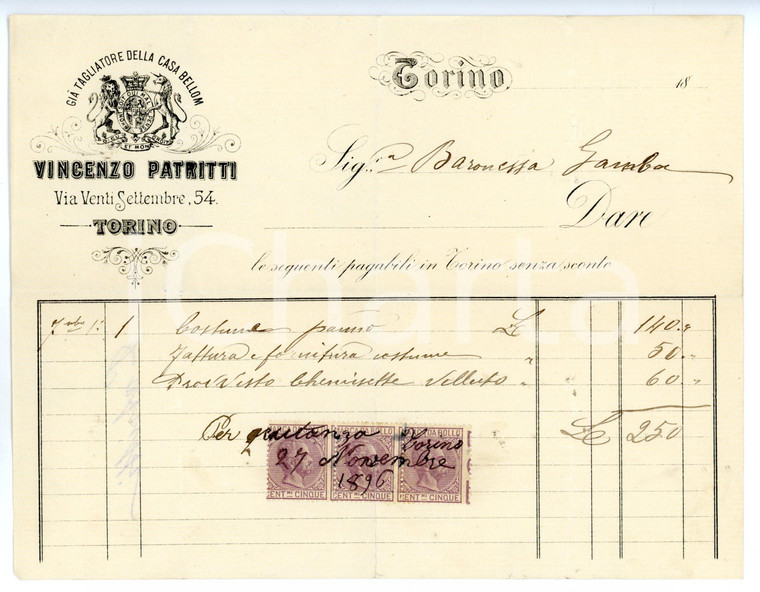 GIÀ TAGLIATORE DELLA CASA BELLOM
ET MON
VINCENZO PATRITTI
Via Venti Settembre, 54.
TORINO
Torino 18
Sig.ra Baronessa Gamba
Dare
le seguenti pagabili in Torino senza sconto
7mbre 1: 1 Costume panno £ 140 "
Fattura e fornitura costume " 50 "
Chemisette Velluto " 60 "
Per quitanza Torino £ 250
27 Novembre
1896
MARCA DA BOLLO DA BOLLO
CENT.MI CINQUE CENT.MI CINQUE CENT.MI CINQUE
Charta